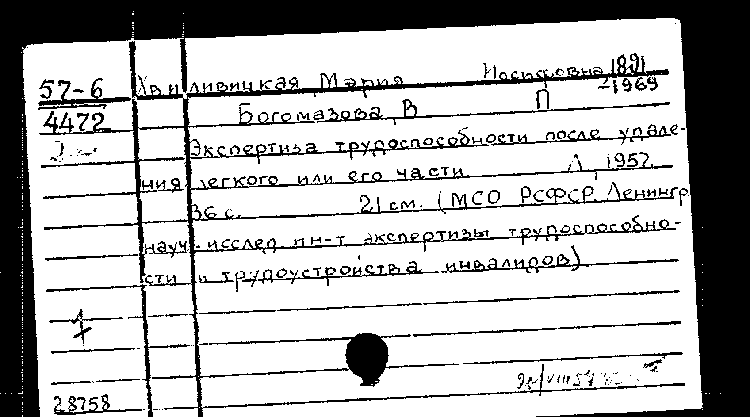 57-6 Хвиливицкая, Мария Иосифовна 1891
-1969
4472 Богомазова, В П
Экспертиза трудоспособности после удале-
ния легкого или его части Л, 1957.
36 с. 21 см. (МСО РСФСР. Ленингр
науч.-исслед. ин-т экспертизы трудоспособно-
сти и трудоустройства инвалидов)
28758